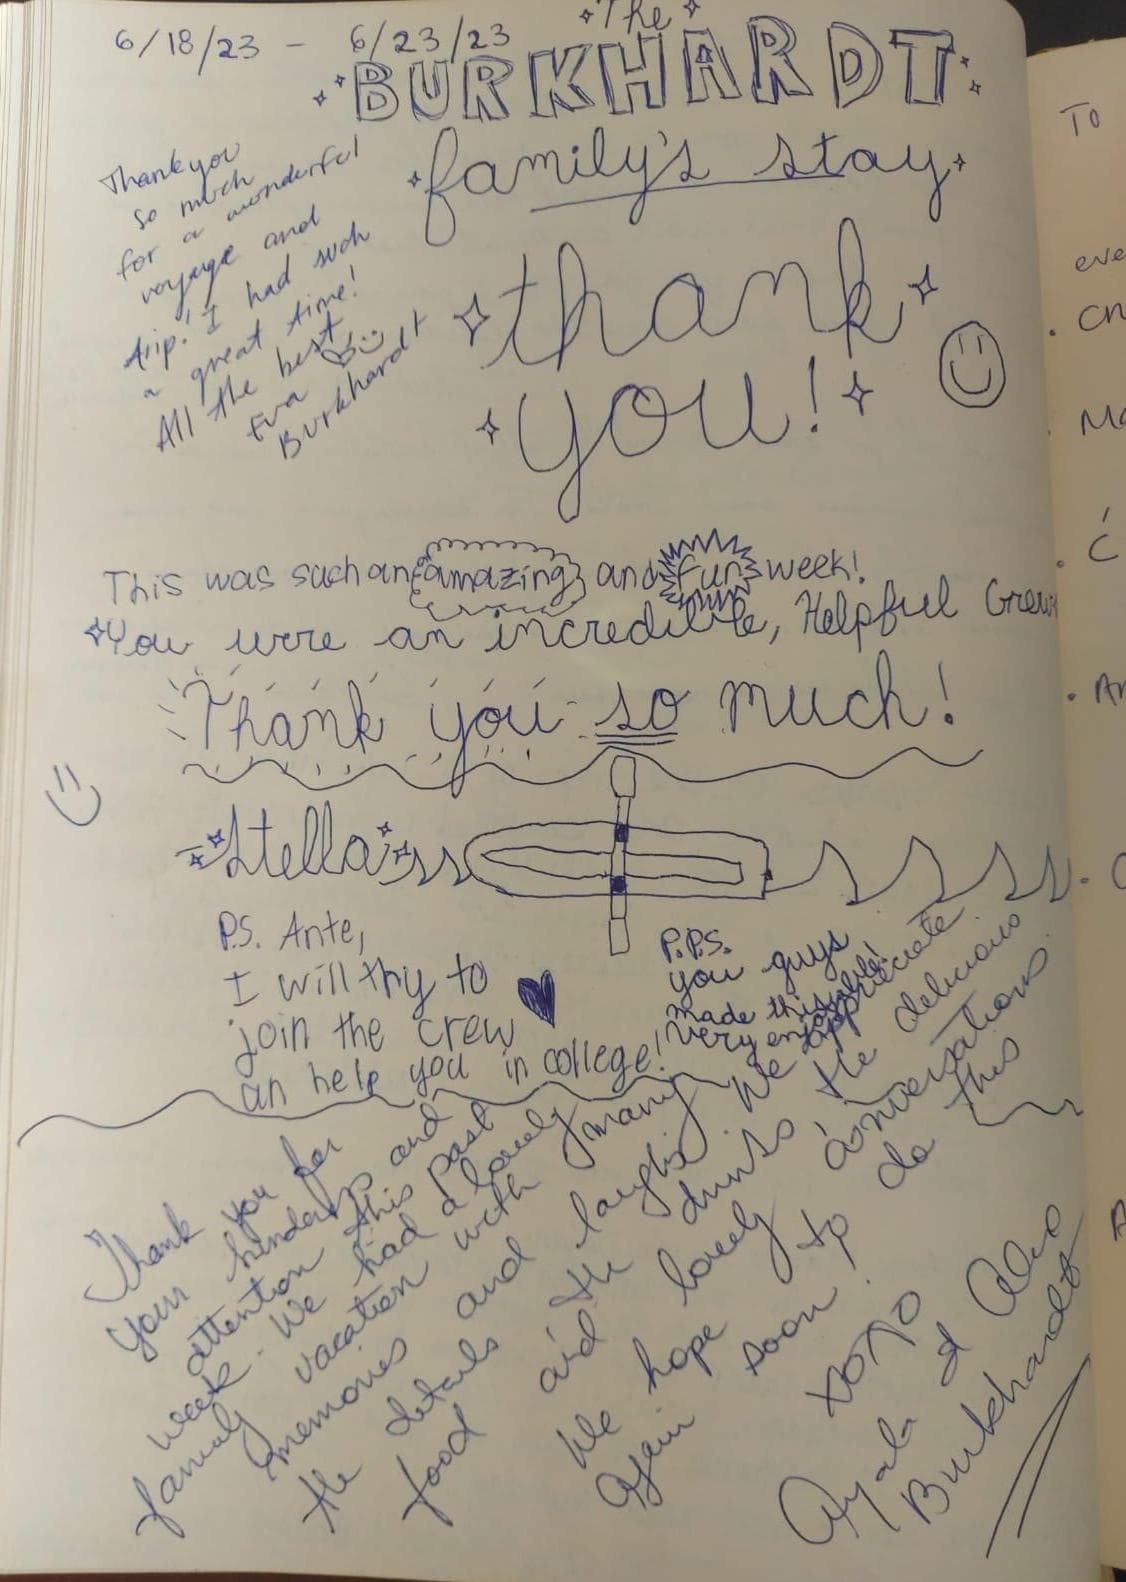 6/18/23 - 6/23/23
The
BURKHARDT
family's stay
thank
you!
Thank you
so much
for a wonderful
voyage and
trip! I had such
a great time!
All the best
Eva
Burkhardt
This was such an amazing and fun week!
You were an incredible, Helpful Crew
Thank you so much!
Stella
P.S. Ante,
I will try to
join the crew
an help you in college!
P.P.S.
you guys
made this
very enjoyable!
Thank you for
your kindness and
attention this past
week. We had a lovely
family vacation with many
memories and laughs. We appreciate
the details the drinks the delicious
food and lovely conversations
We hope to do this
again soon!
XOXO
Ayala & Alex
Burkhardt
To
eve
Cr
Ma
C
Ar